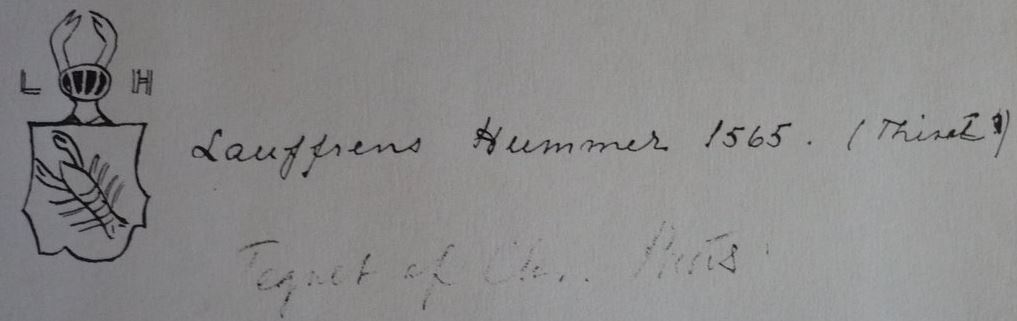 L H
Lauffrens Hummer 1565. (Thiset)
Tegnet af Chr.